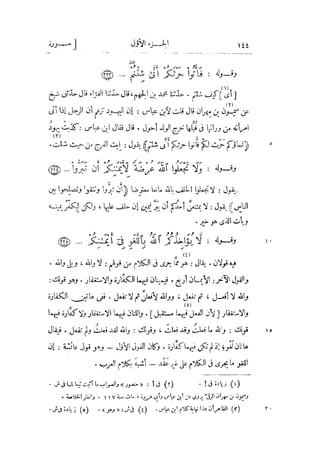 ١٤٤ الجـــزء الأول [ ســـورة
وقـــوله : فَأْتُوا حَرْثَكُمْ أَنَّىٰ شِئْتُمْ ... ٢٢٣
[ أى] كيف شئتم . حدّثنا محمد بن الجهم، قال حدّثنا الفرّاء قال حدّثنى شيخ
عن ميمون بن مهران قال قلت لابن عباس : إن اليهود تزعم أن الرجل إذا أتى
امرأته من ورائها فى قبلها خرج الولد أحول . قال فقال ابن عباس : كذبت يهود
٥ (نساؤكم حرث لكم فأتوا حرثكم أنى شئتم) يقول : إيت الفرج من حيث شئت .
وقـــوله : وَلَا تَجْعَلُوا اللَّهَ عُرْضَةً لِأَيْمَانِكُمْ أَن تَبَرُّوا ...
يقول : لا تجعلوا الحلف بالله مانعا معترضا (أن تبروا وتتقوا وتصلحوا بين
الناس) يقول : لا يمتنعنّ أحدكم أن يبرّ ليمين إن حلف عليها ، ولكن ليكفّر يمينه
ويأت الذى هو خير .
١٠ وقـــوله : لَا يُؤَاخِذُكُمُ اللَّهُ بِاللَّغْوِ فِي أَيْمَانِكُمْ ... ٢٢٥
فيه قولان . يقال : هو ممّا جرى فى الكلام من قولهم : لا والله ، وبلى والله .
والقول الآخر : الأيمان أربع . فيمينان فيهما الكفّارة والاستغفار . وهو قولك :
والله لا أفعل ، ثم تفعل ، ووالله لأفعلنّ ثم لا تفعل . ففى هاتين الكفارة
والاستغفار [لأن الفعل فيهما مستقبل] . واللتان فيهما الاستغفار ولا كفّارة فيهما
١٥ قولك : والله ما فعلت وقد فعلت ، وقولك : والله لقد فعلت ولم تفعل . فيقال
هاتان لَغْو؛ إذ لم تكن فيهما كفّارة . وكأن القول الأوّل — وهو قول عائشة : إن
اللغو ما يجرى فى الكلام على غير عَقْد — أشبه بكلام العرب .
(١) زيادة فى أ . (٢) فى أ : « منصور » والصواب ما أثبت تبعا لما فى ش .
وميمون بن مهران الرقىّ يروى عن ابن عباس وأبى هريرة ، مات سنة ١١٧ . وانظر الخلاصة .
٢٠ (٣) الظاهر أن هذا نهاية كلام ابن عباس . (٤) فى ش : « وهو » . (٥) زيادة فى ش .